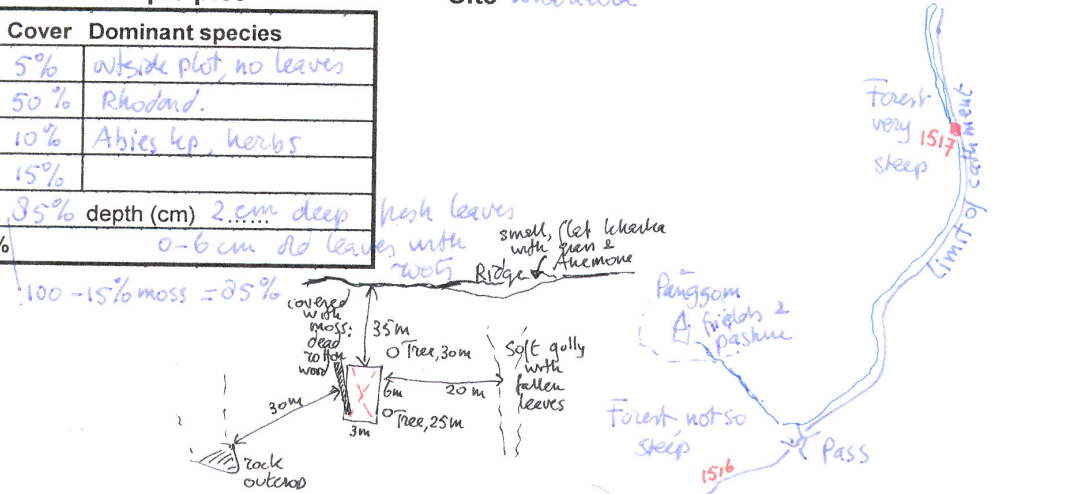 Site
Cover Dominant species
5% outside plot, no leaves
50% Rhodond.
10% Abies sp, herbs
15%
85% depth (cm) 2 cm deep fresh leaves
% 0-6 cm old leaves with
roots
100 - 15% moss = 85%
small, flat kharka
with grass &
Anemone
Ridge
covered
with
moss:
dead
rotten
wood
35m
Tree, 30m
6m
20 m
Tree, 25m
3m
30m
rock
outcrop
Soft gully
with
fallen
leaves
Forest
very
steep
1517
Limit of catchment
Panggom
fields &
pasture
Forest, not so
steep
1516
Pass